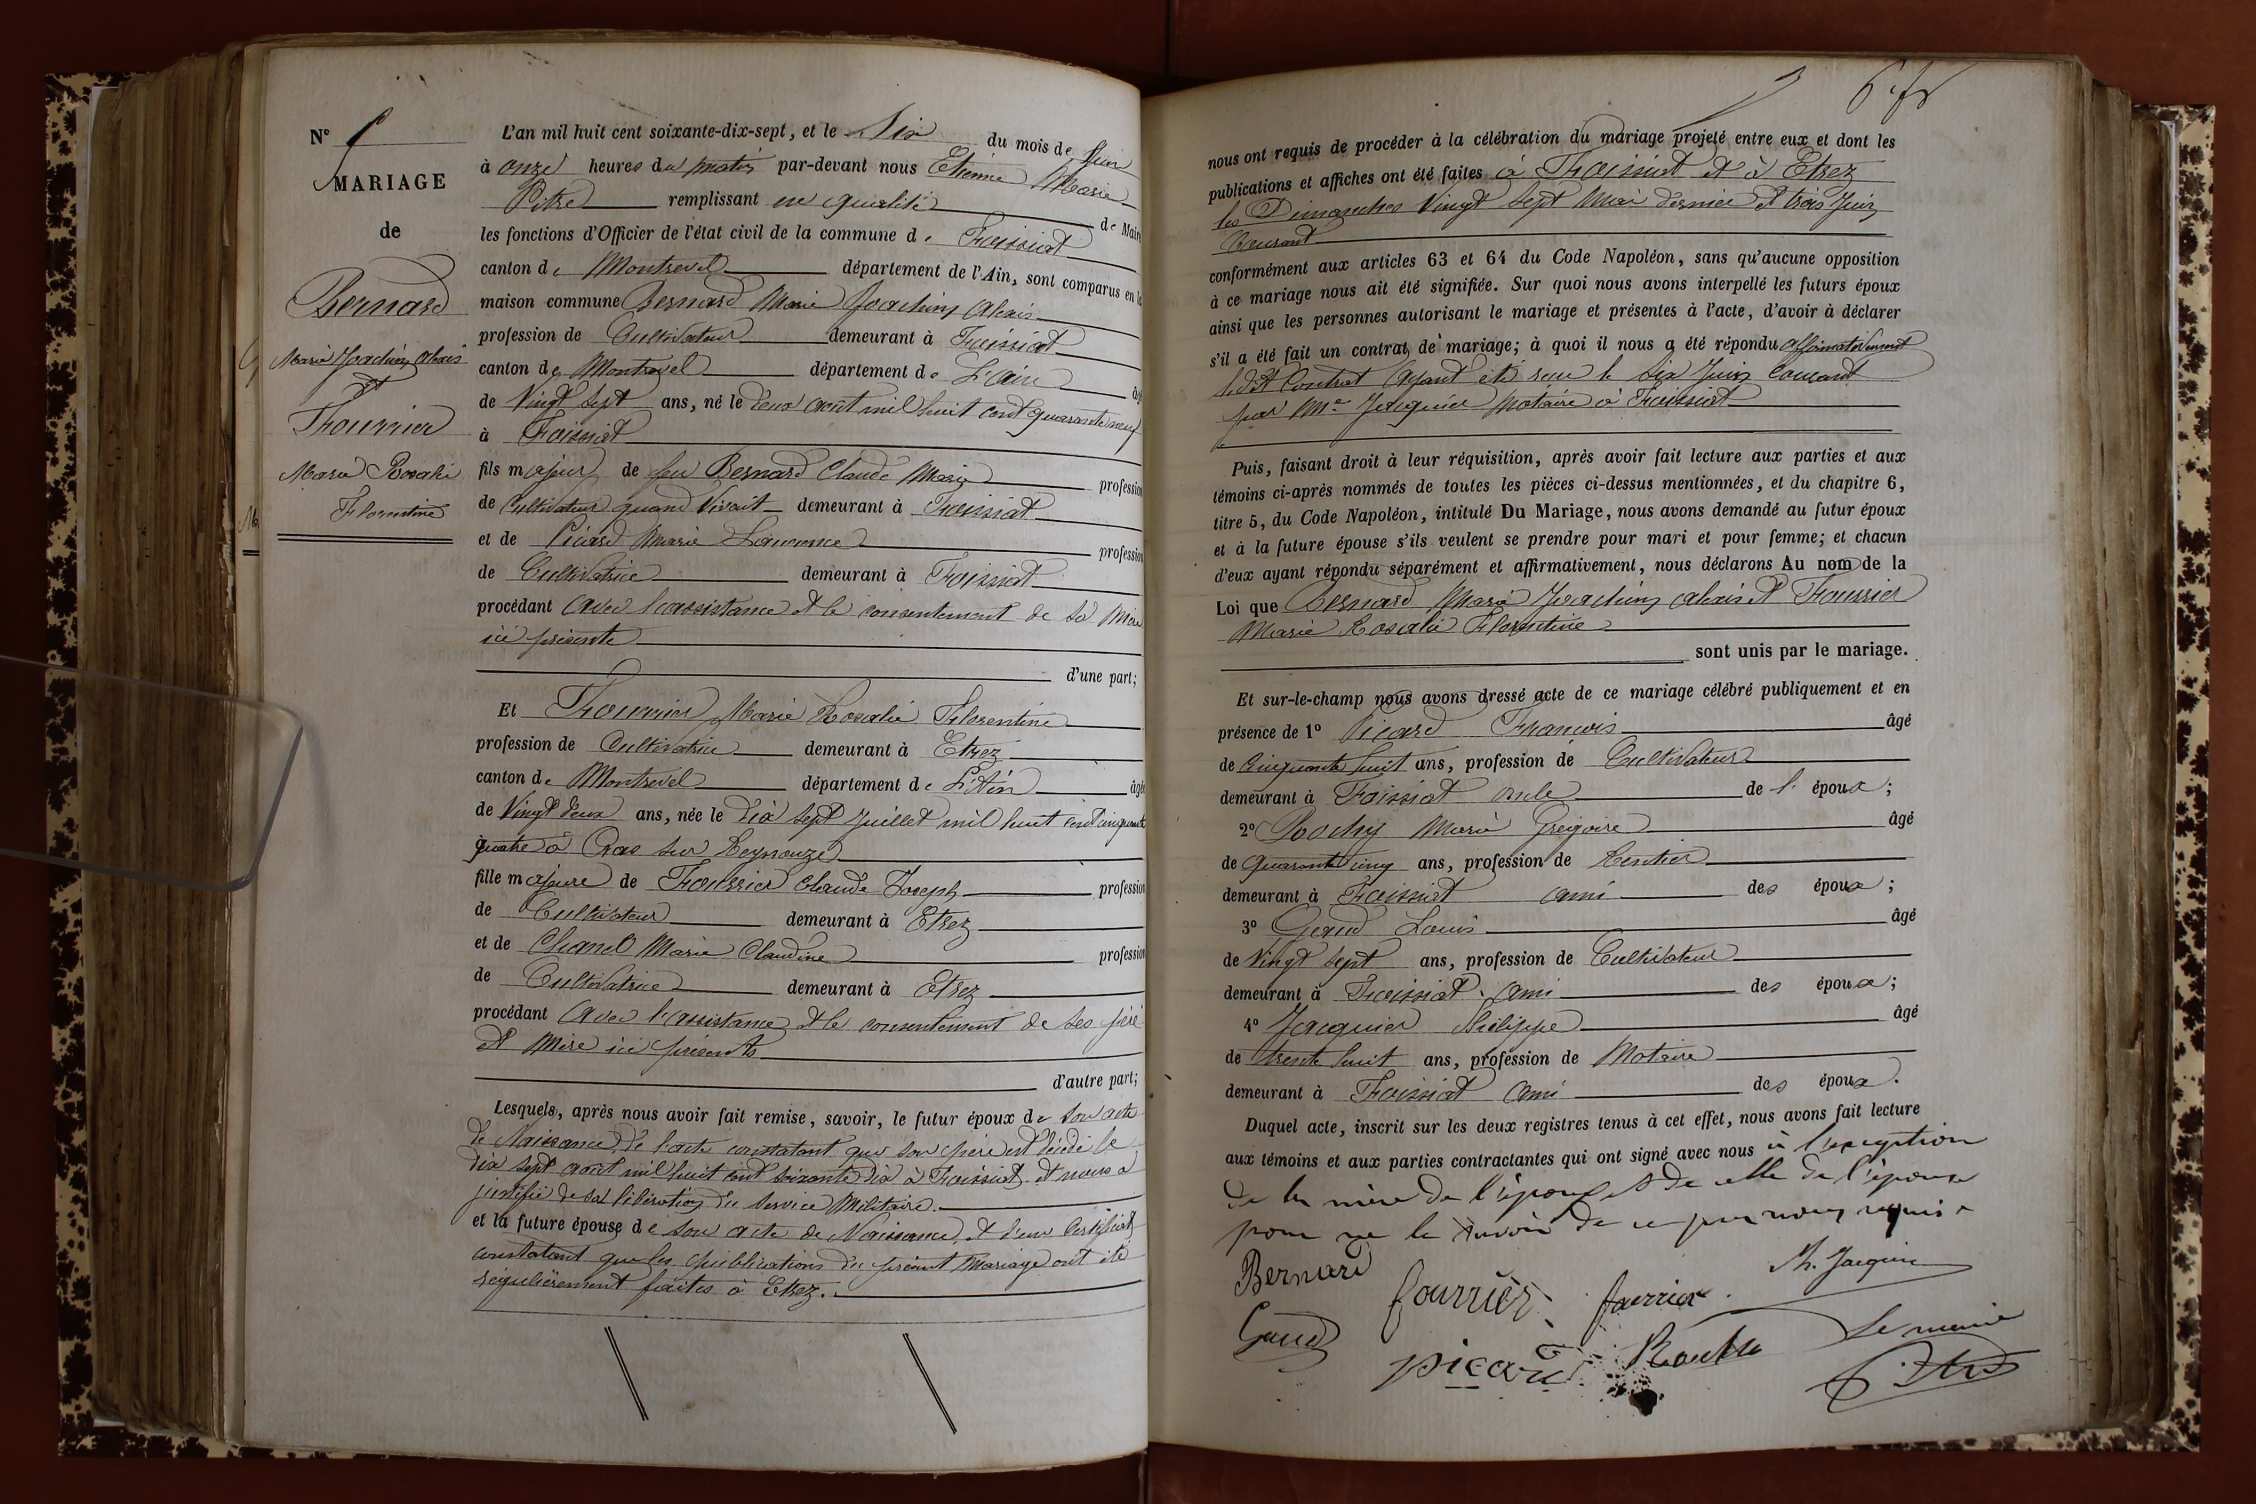 N° 6
MARIAGE
de
Bernard
Marie Joachim Alexis
et
Fourrier
Marie Rosalie
Florentine
L'an mil huit cent soixante-dix-sept, et le Six du mois de Juin
à onze heures du matin par-devant nous Etienne Marie
Pitre remplissant en qualité de Maire
les fonctions d'Officier de l'état civil de la commune de Foissiat
canton de Montrevel département de l'Ain, sont comparus en la
maison commune Bernard Marie Joachim Alexis
profession de Cultivateur demeurant à Foissiat
canton de Montrevel département de L'ain âgé
de Vingt Sept ans, né le deux août mil huit cent quarante neuf
à Foissiat
fils majeur de feu Bernard Claude Marie profession
de Cultivateur quand Vivait demeurant à Foissiat
et de Picard Marie Laurence profession
de Cultivatrice demeurant à Foissiat
procédant avec l'assistance et le consentement de sa Mère
ici présente
d'une part;
Et Fourrier Marie Rosalie Florentine
profession de Cultivatrice demeurant à Etrez
canton de Montrevel département de L'Ain âgée
de Vingt deux ans, née le dix sept Juillet mil huit cent cinquante
quatre à Cras sur Reyssouze
fille majeure de Fourrier Claude Joseph profession
de Cultivateur demeurant à Etrez
et de Chanel Marie Claudine profession
de Cultivatrice demeurant à Etrez
procédant avec l'assistance et le consentement de ses père
et Mère ici présents
d'autre part;
Lesquels, après nous avoir fait remise, savoir, le futur époux de son acte
de Naissance, de l'acte constatant que son père est décédé le
dix sept août mil huit cent soixante dix à Foissiat et nous a
justifié de sa libération du service Militaire.
et la future épouse de son acte de Naissance et d'un Certificat
constatant que les publications du présent Mariage ont été
régulièrement faites à Etrez.
nous ont requis de procéder à la célébration du mariage projeté entre eux et dont les
publications et affiches ont été faites à Foissiat et à Etrez
les Dimanches Vingt Sept Mai dernier et trois Juin
Courant
conformément aux articles 63 et 64 du Code Napoléon, sans qu'aucune opposition
à ce mariage nous ait été signifiée. Sur quoi nous avons interpellé les futurs époux
ainsi que les personnes autorisant le mariage et présentes à l'acte, d'avoir à déclarer
s'il a été fait un contrat de mariage; à quoi il nous a été répondu affirmativement
ledit Contrat ayant été reçu le Six Juin Courant
par Me Jacquier Notaire à Foissiat
Puis, faisant droit à leur réquisition, après avoir fait lecture aux parties et aux
témoins ci-après nommés de toutes les pièces ci-dessus mentionnées, et du chapitre 6,
titre 5, du Code Napoléon, intitulé Du Mariage, nous avons demandé au futur époux
et à la future épouse s'ils veulent se prendre pour mari et pour femme; et chacun
d'eux ayant répondu séparément et affirmativement, nous déclarons Au nom de la
Loi que Bernard Marie Joachim Alexis et Fourrier
Marie Rosalie Florentine
sont unis par le mariage.
Et sur-le-champ nous avons dressé acte de ce mariage célébré publiquement et en
présence de 1° Picard François âgé
de Cinquante huit ans, profession de Cultivateur
demeurant à Foissiat oncle de l' époux;
2° Marie Grégoire âgé
de quarante cinq ans, profession de Rentier
demeurant à Foissiat ami des époux;
3° Gaud Louis âgé
de Vingt Sept ans, profession de Cultivateur
demeurant à Foissiat ami des époux;
4° Jacquier Philippe âgé
de trente huit ans, profession de Notaire
demeurant à Foissiat ami des époux.
Duquel acte, inscrit sur les deux registres tenus à cet effet, nous avons fait lecture
aux témoins et aux parties contractantes qui ont signé avec nous à l'exception
de la mère de l'époux et de celle de l'épouse
pour ne le savoir de ce par nous requis
Bernard fourrier fourrier Ph. Jacquier
Gaud picard Le maire
Pitre